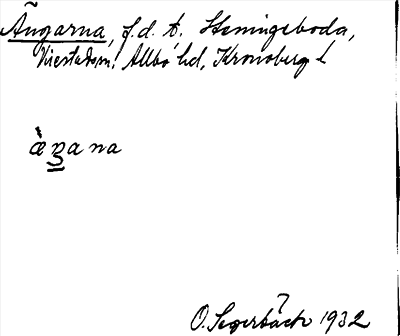 Ängarna, f.d. t. Hemingeboda,
Virestadsn! Allbo hd, Kronoberg l
ŋana
O. Segerbäck 1932